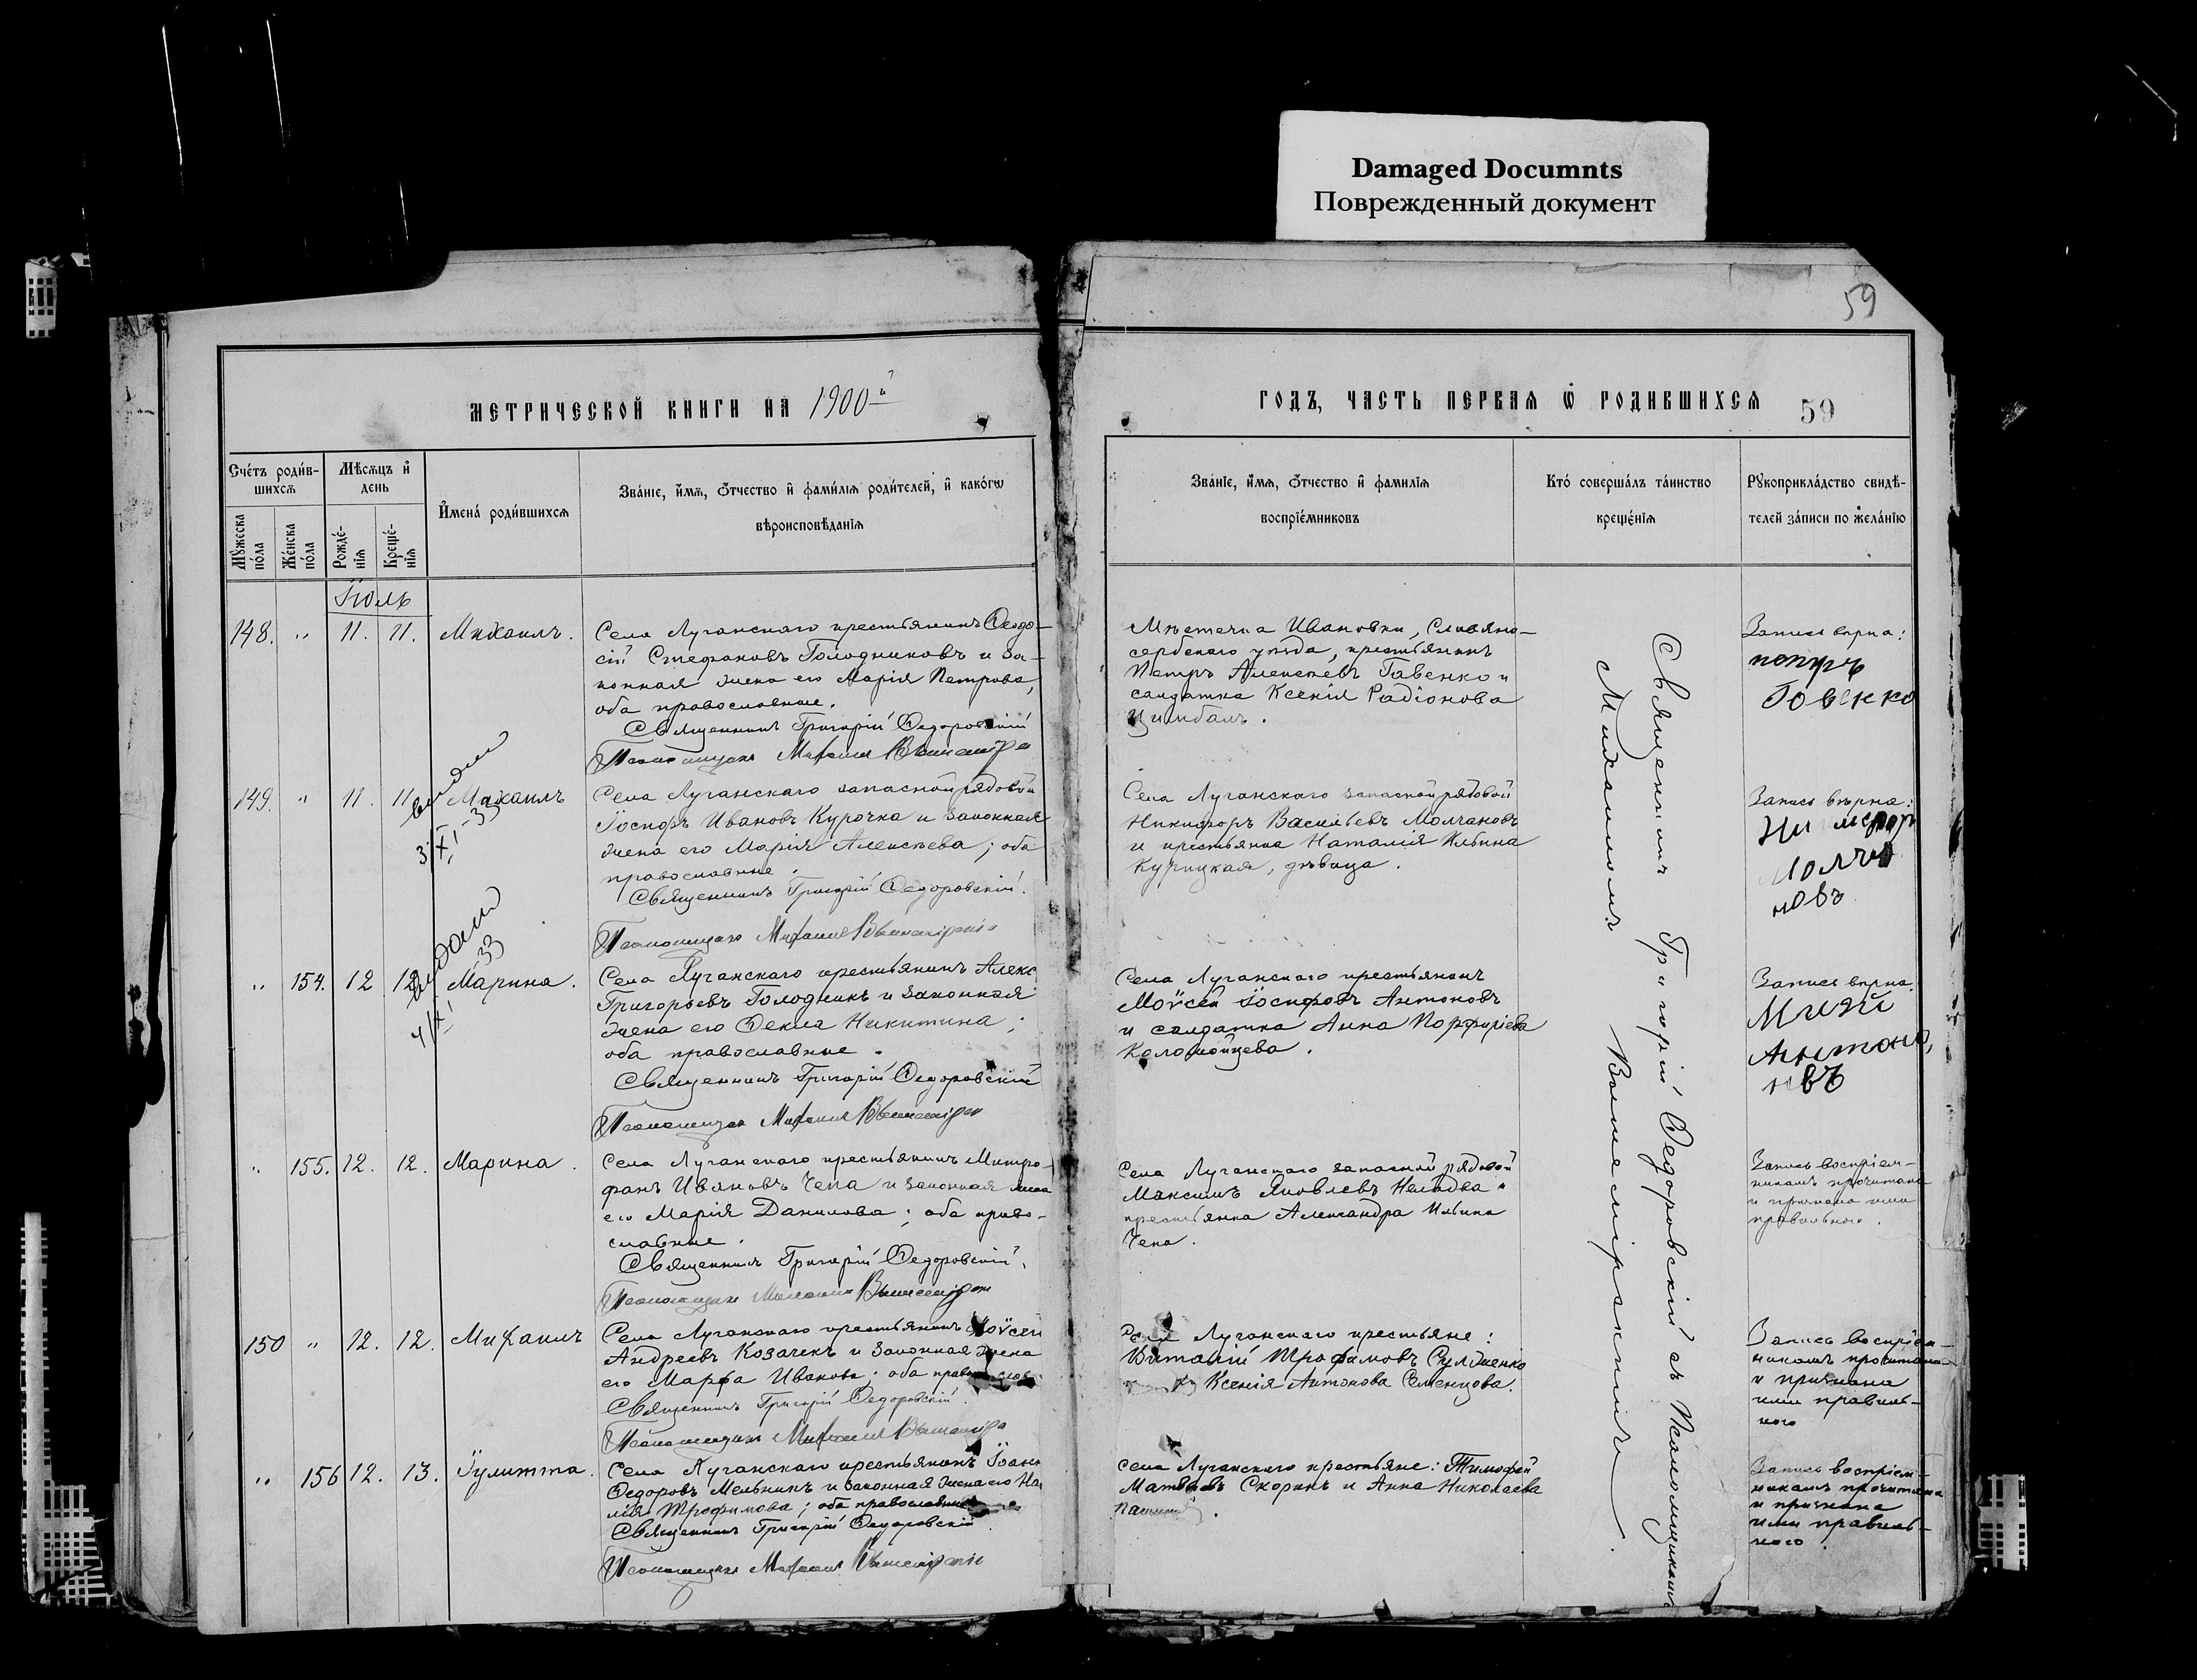 Damaged Documnts
Поврежденный документ
59
МЕТРИЧЕСКОЙ КНИГИ НА 1900й
ГОДЪ, ЧАСТЬ ПЕРВАЯ Ѿ РОДИВШИХСЯ 59
Счётъ роди́в-
шихсѧ
Мѣсѧцъ и҆
день
И҆мена́ роди́вшихсѧ
Зва́нїе, и҆́мѧ, ѻ҆́тчество и҆ фами́лїѧ роди́телей, и҆ како́гѡ
вѣроисповѣ́данїѧ
Мꙋ́жеска
по́ла
Же́нска
по́ла
Рожде́-
нїѧ
Креще́-
нїѧ
Зва́нїе, и҆́мѧ, ѻ҆́тчество и҆ фами́лїѧ
воспрїе́мниковъ
Кто́ соверша́лъ та́инство
креще́нїѧ
Рꙋкоприкла́дство свидѣ́-
телей за́писи по жела́нїю
Іюль
148. " 11. 11. Михаилъ.
Села Луганскаго крестьянинъ Ѳеодо-
сій Стефановъ Голодниковъ и за-
конная жена его Марія Петрова,
оба православные.
Священникъ Григорій Ѳедоровскій
Псаломщикъ Михаилъ
Мѣстечка Ивановки, Славяно-
сербскаго уѣзда, крестьянинъ
Петръ Алексѣевъ Гавенко и
солдатка Ксенія Радіонова
Цимбалъ.
Запись вѣрна:
Говенко
149. " 11. 11 Михаилъ
Села Луганскаго запасной рядовой
Іосифъ Ивановъ Курочка и законная
жена его Марія Алексѣева; оба
православные.
Священникъ Григорій Ѳедоровскій.
Псаломщикъ Михаилъ
Села Луганскаго запасной рядовой
Никифоръ Васильевъ Молчановъ
и крестьянка Наталія Ильина
Курицкая, дѣвица.
Запись вѣрна:
Молча
новъ
" 154. 12 12 Марина.
Села Луганскаго крестьянинъ Алекс
Григорьевъ Голодникъ и законная
жена его Ѳекла Никитина;
оба православные.
Священникъ Григорій Ѳедоровскій
Псаломщикъ Михаилъ
Села Луганскаго крестьянинъ
Моѵсей Іосифовъ Антоновъ
и солдатка Анна Порфиріева
Коломойцева.
Запись вѣрна.
Антоно
нвъ
" 155. 12. 12. Марина.
Села Луганскаго крестьянинъ Митро-
фанъ Ивановъ Чепа и законная жена
его Марія Данилова; оба право-
славные.
Священникъ Григорій Ѳедоровскій.
Псаломщикъ Михаилъ
Села Луганскаго запасной рядовой
Максимъ Яковлевъ и
крестьянка Александра Ильина
Чепа.
Запись воспріем-
никамъ прочитана
и признана ими
правильною.
150 " 12. 12. Михаилъ
Села Луганскаго крестьянинъ Моѵсей
Андреевъ Козачекъ и законная жена
его Марѳа Иванова; оба православ
Священникъ Григорій Ѳедоровскій.
Псаломщикъ Михаилъ
Села Луганскаго крестьяне:
Виталій Трофимовъ
Ксенія Антонова
Запись воспріем-
никамъ прочитана
и признана
ими правиль-
ною
" 156 12. 13. Іулитта.
Села Луганскаго крестьянинъ Іоанн
Ѳедоровъ Мельникъ и законная жена его На
лія Трофимова; оба православные
Священникъ Григорій Ѳедоровскій
Псаломщикъ Михаилъ
Села Луганскаго крестьяне: Тимофей
Матвѣевъ Скорикъ и Анна Николаева
Запись воспріем-
никамъ прочитана
и признана
ими правиль-
ною.
Священникъ Григорій Ѳедоровскій съ Псаломщикомъ
Михаиломъ Вышемірскимъ.